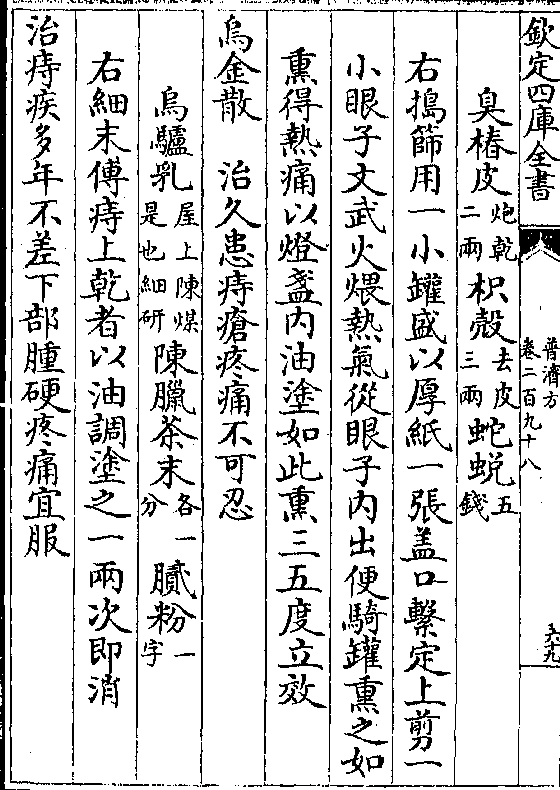 欽定四庫全書
普濟方
卷二百九十八
臭椿皮炮乾二兩枳殼去皮三兩蛇蜕五錢
右搗篩用一小罐盛以厚紙一張盖口繫定上剪一
小眼子文武火煨熱氣從眼子内出便騎罐熏之如
熏得熱痛以燈盞内油塗如此熏三五度立效
烏金散 治久患痔瘡疼痛不可忍
烏驢乳屋上陳煤是也細研陳臘茶末各一分膩粉一字
右細末傅痔上乾者以油調塗之一兩次即消
治痔疾多年不差下部腫硬疼痛宜服